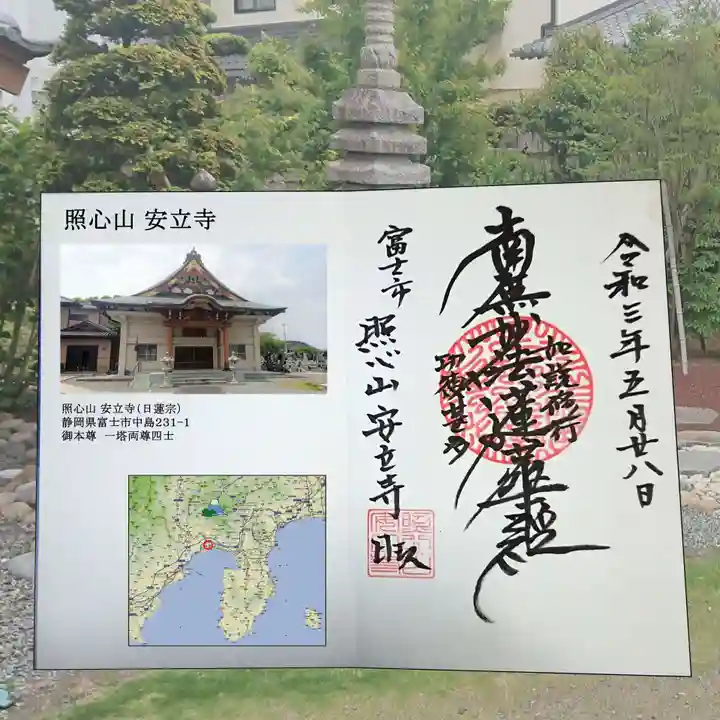 照心山 安立寺
照心山 安立寺(日蓮宗)
静岡県富士市中島231-1
御本尊 一塔両尊四士
令和三年五月廿八日
如説修行
南無妙法蓮華経
功徳甚多
富士市
照心山安立寺